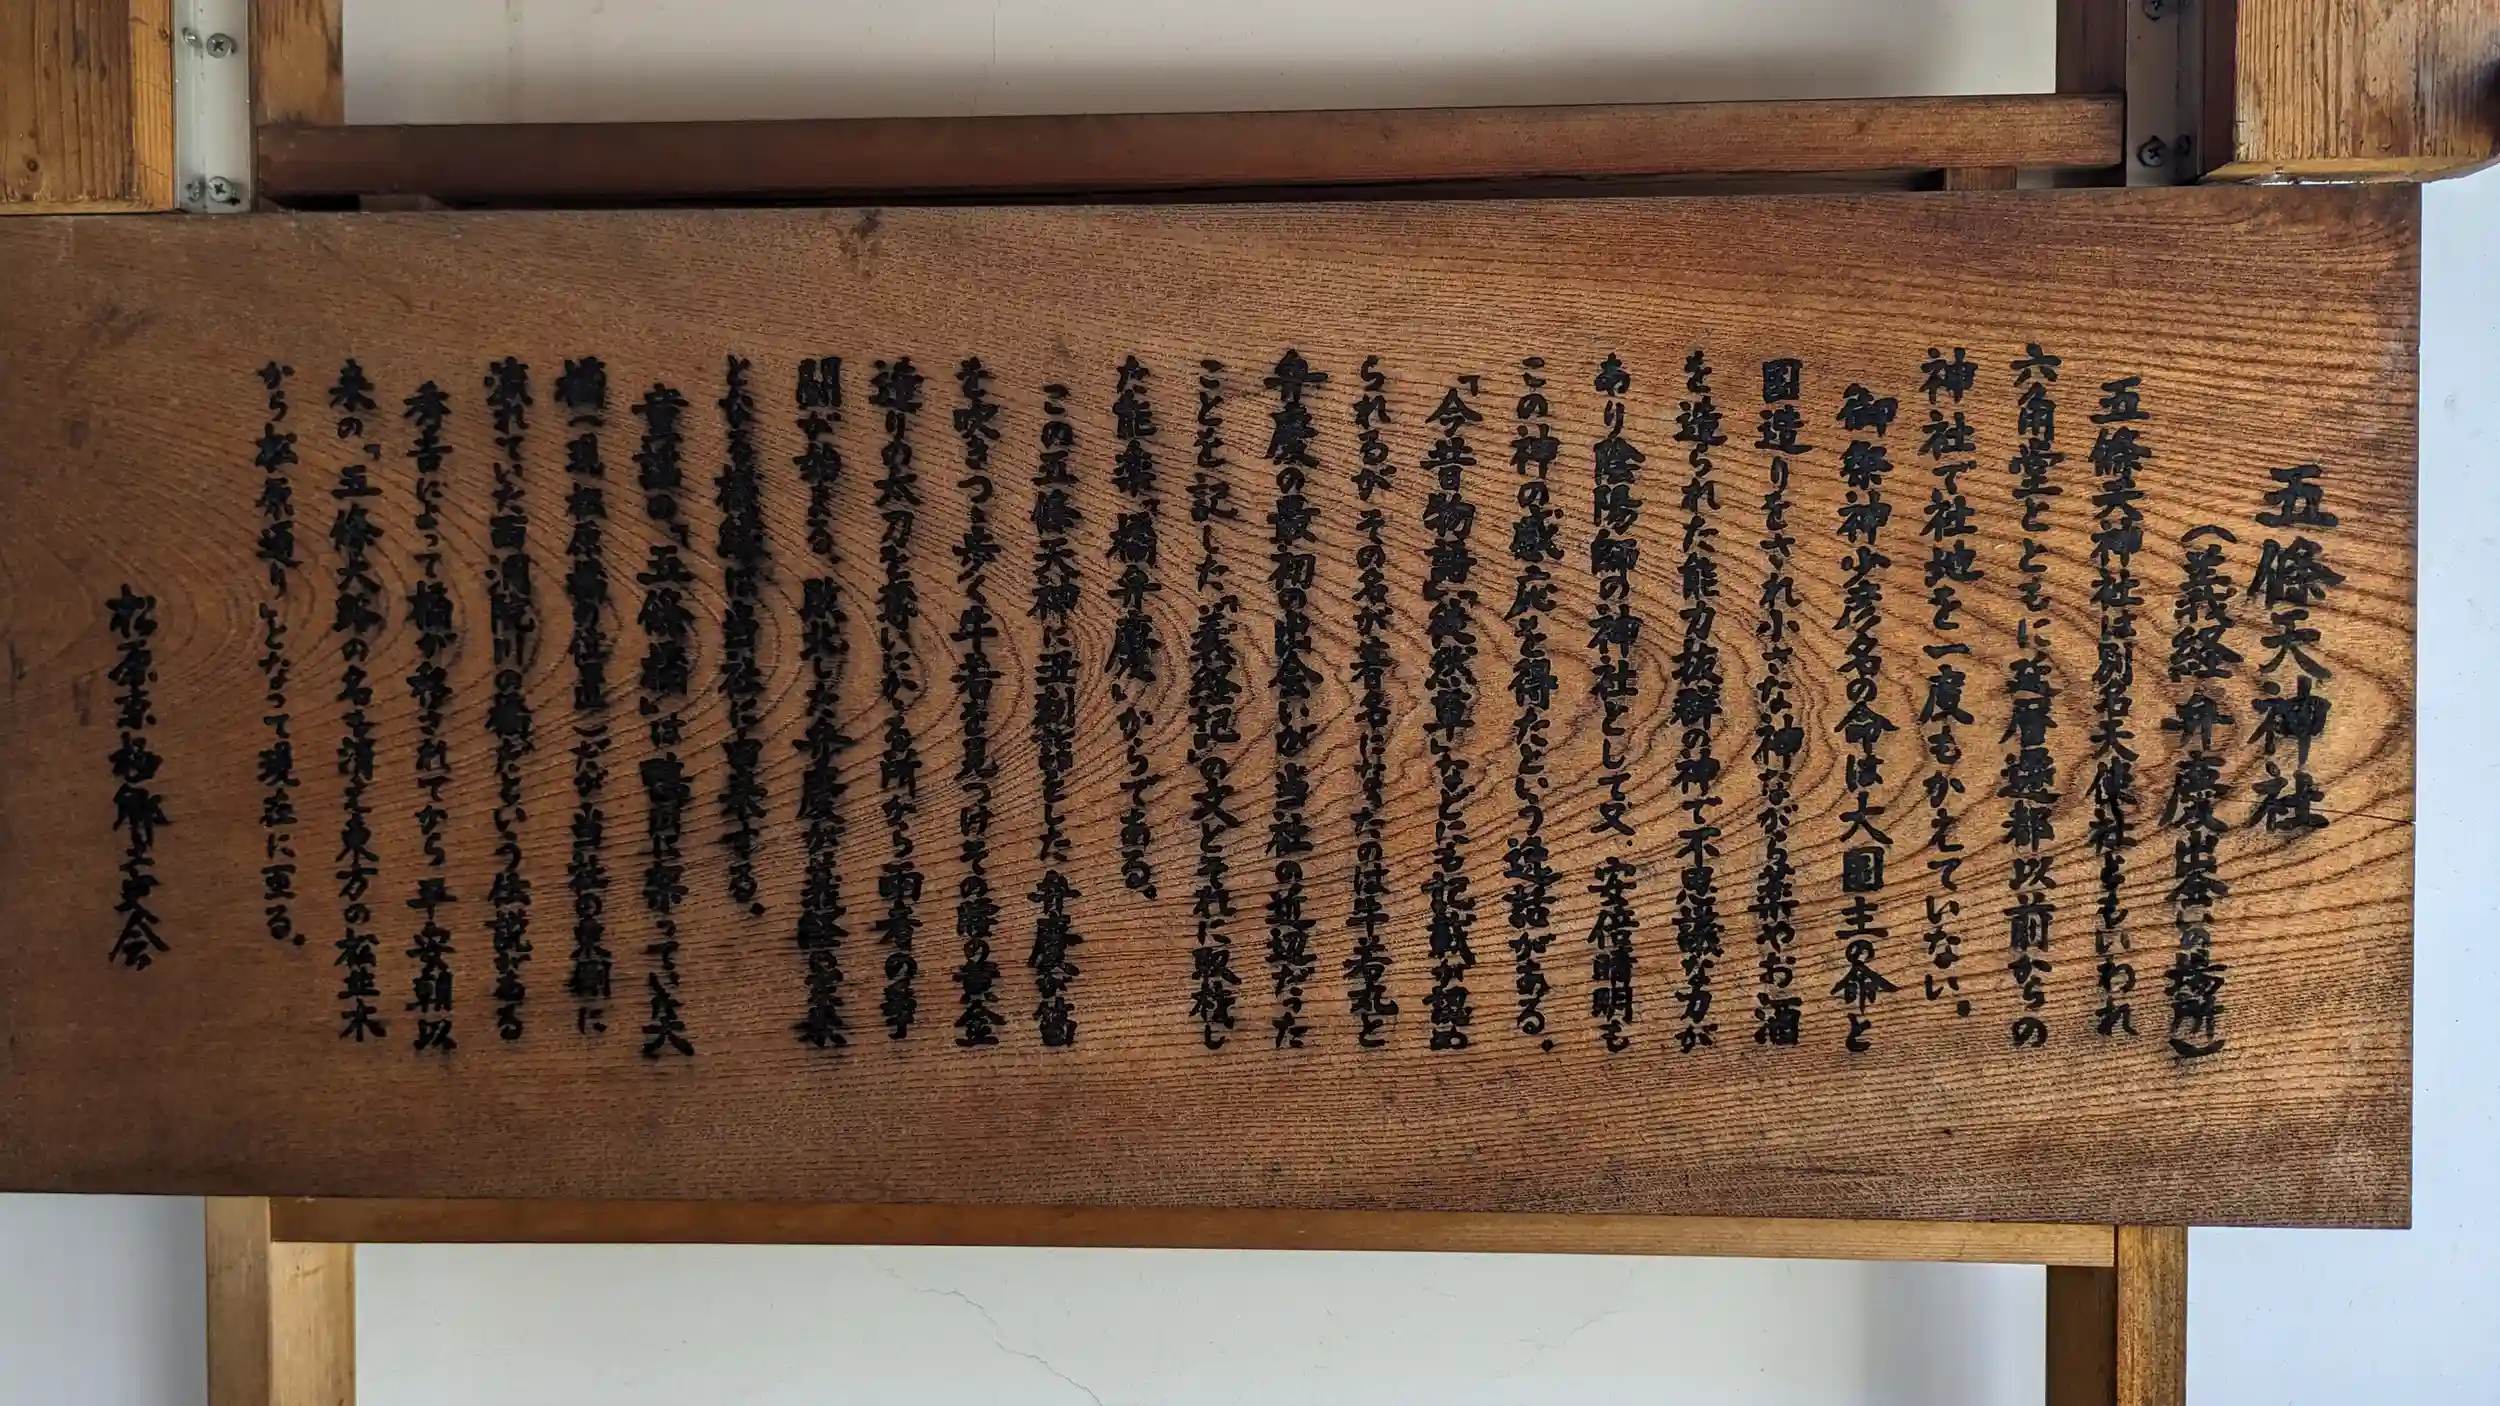 五條天神社
(義経 弁慶出会いの場所)
五條天神社は別名天使社ともいわれ
六角堂とともに延暦遷都以前からの
神社で社地を一度もかえていない。
御祭神少彦名の命は大国主の命と
国造りをされ小さな神ながら薬やお酒
を造られた能力抜群の神で不思議な力が
あり陰陽師の神社として又、安倍晴明も
この神の感応を得たという逸話がある。
「今昔物語」「徒然草」などにも記載が認め
られるが その名が著名になったのは牛若丸と
弁慶の最初の出会いが当社の近辺だった
ことを記した「義経記」の文とそれに取材し
た能楽「橋弁慶」からである。
この五條天神に丑刻詣をした 弁慶が笛
を吹きつゝ歩く牛若を見つけその腰の黄金
造りの太刀を奪いにかゝる所から両者の争
闘が始まる、敗北した弁慶が義経の家来
となる機縁は当社に由来する。
童謡の「五條橋」は鴨川に架っていた大
橋(現 松原橋の位置)だが当社の東側に
流れていた西洞院川の橋だという伝説がある
秀吉によって橋が移されてから 平安朝以
来の「五條大路の名も消え東方の松並木
から松原通り」となって現在に至る。
松原京極郷土史会